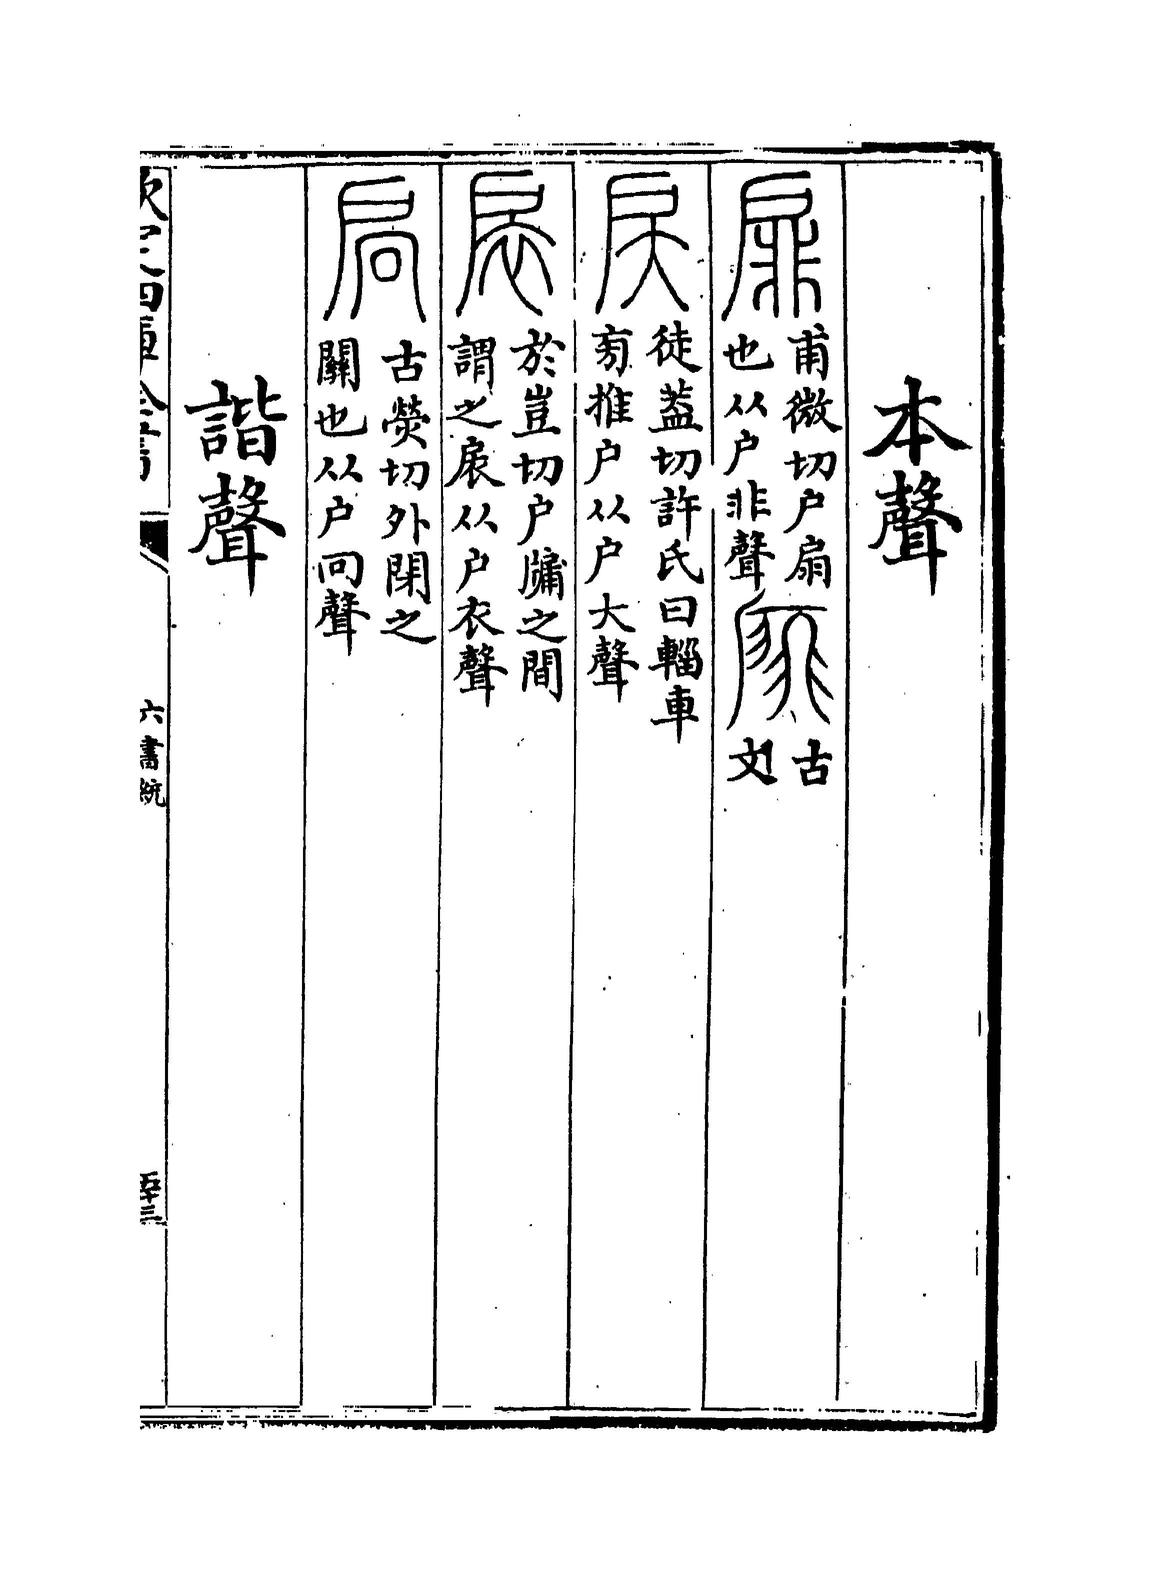 本聲
扉甫微切户扇
也从户非聲
古
文
戻徒葢切許氏曰輜車
㫄推户从户大聲
扆於豈切户牖之間
謂之扆从户衣聲
扃古熒切外閉之
關也从户冋聲
諧聲
欽定四庫全書
六書統
五十三